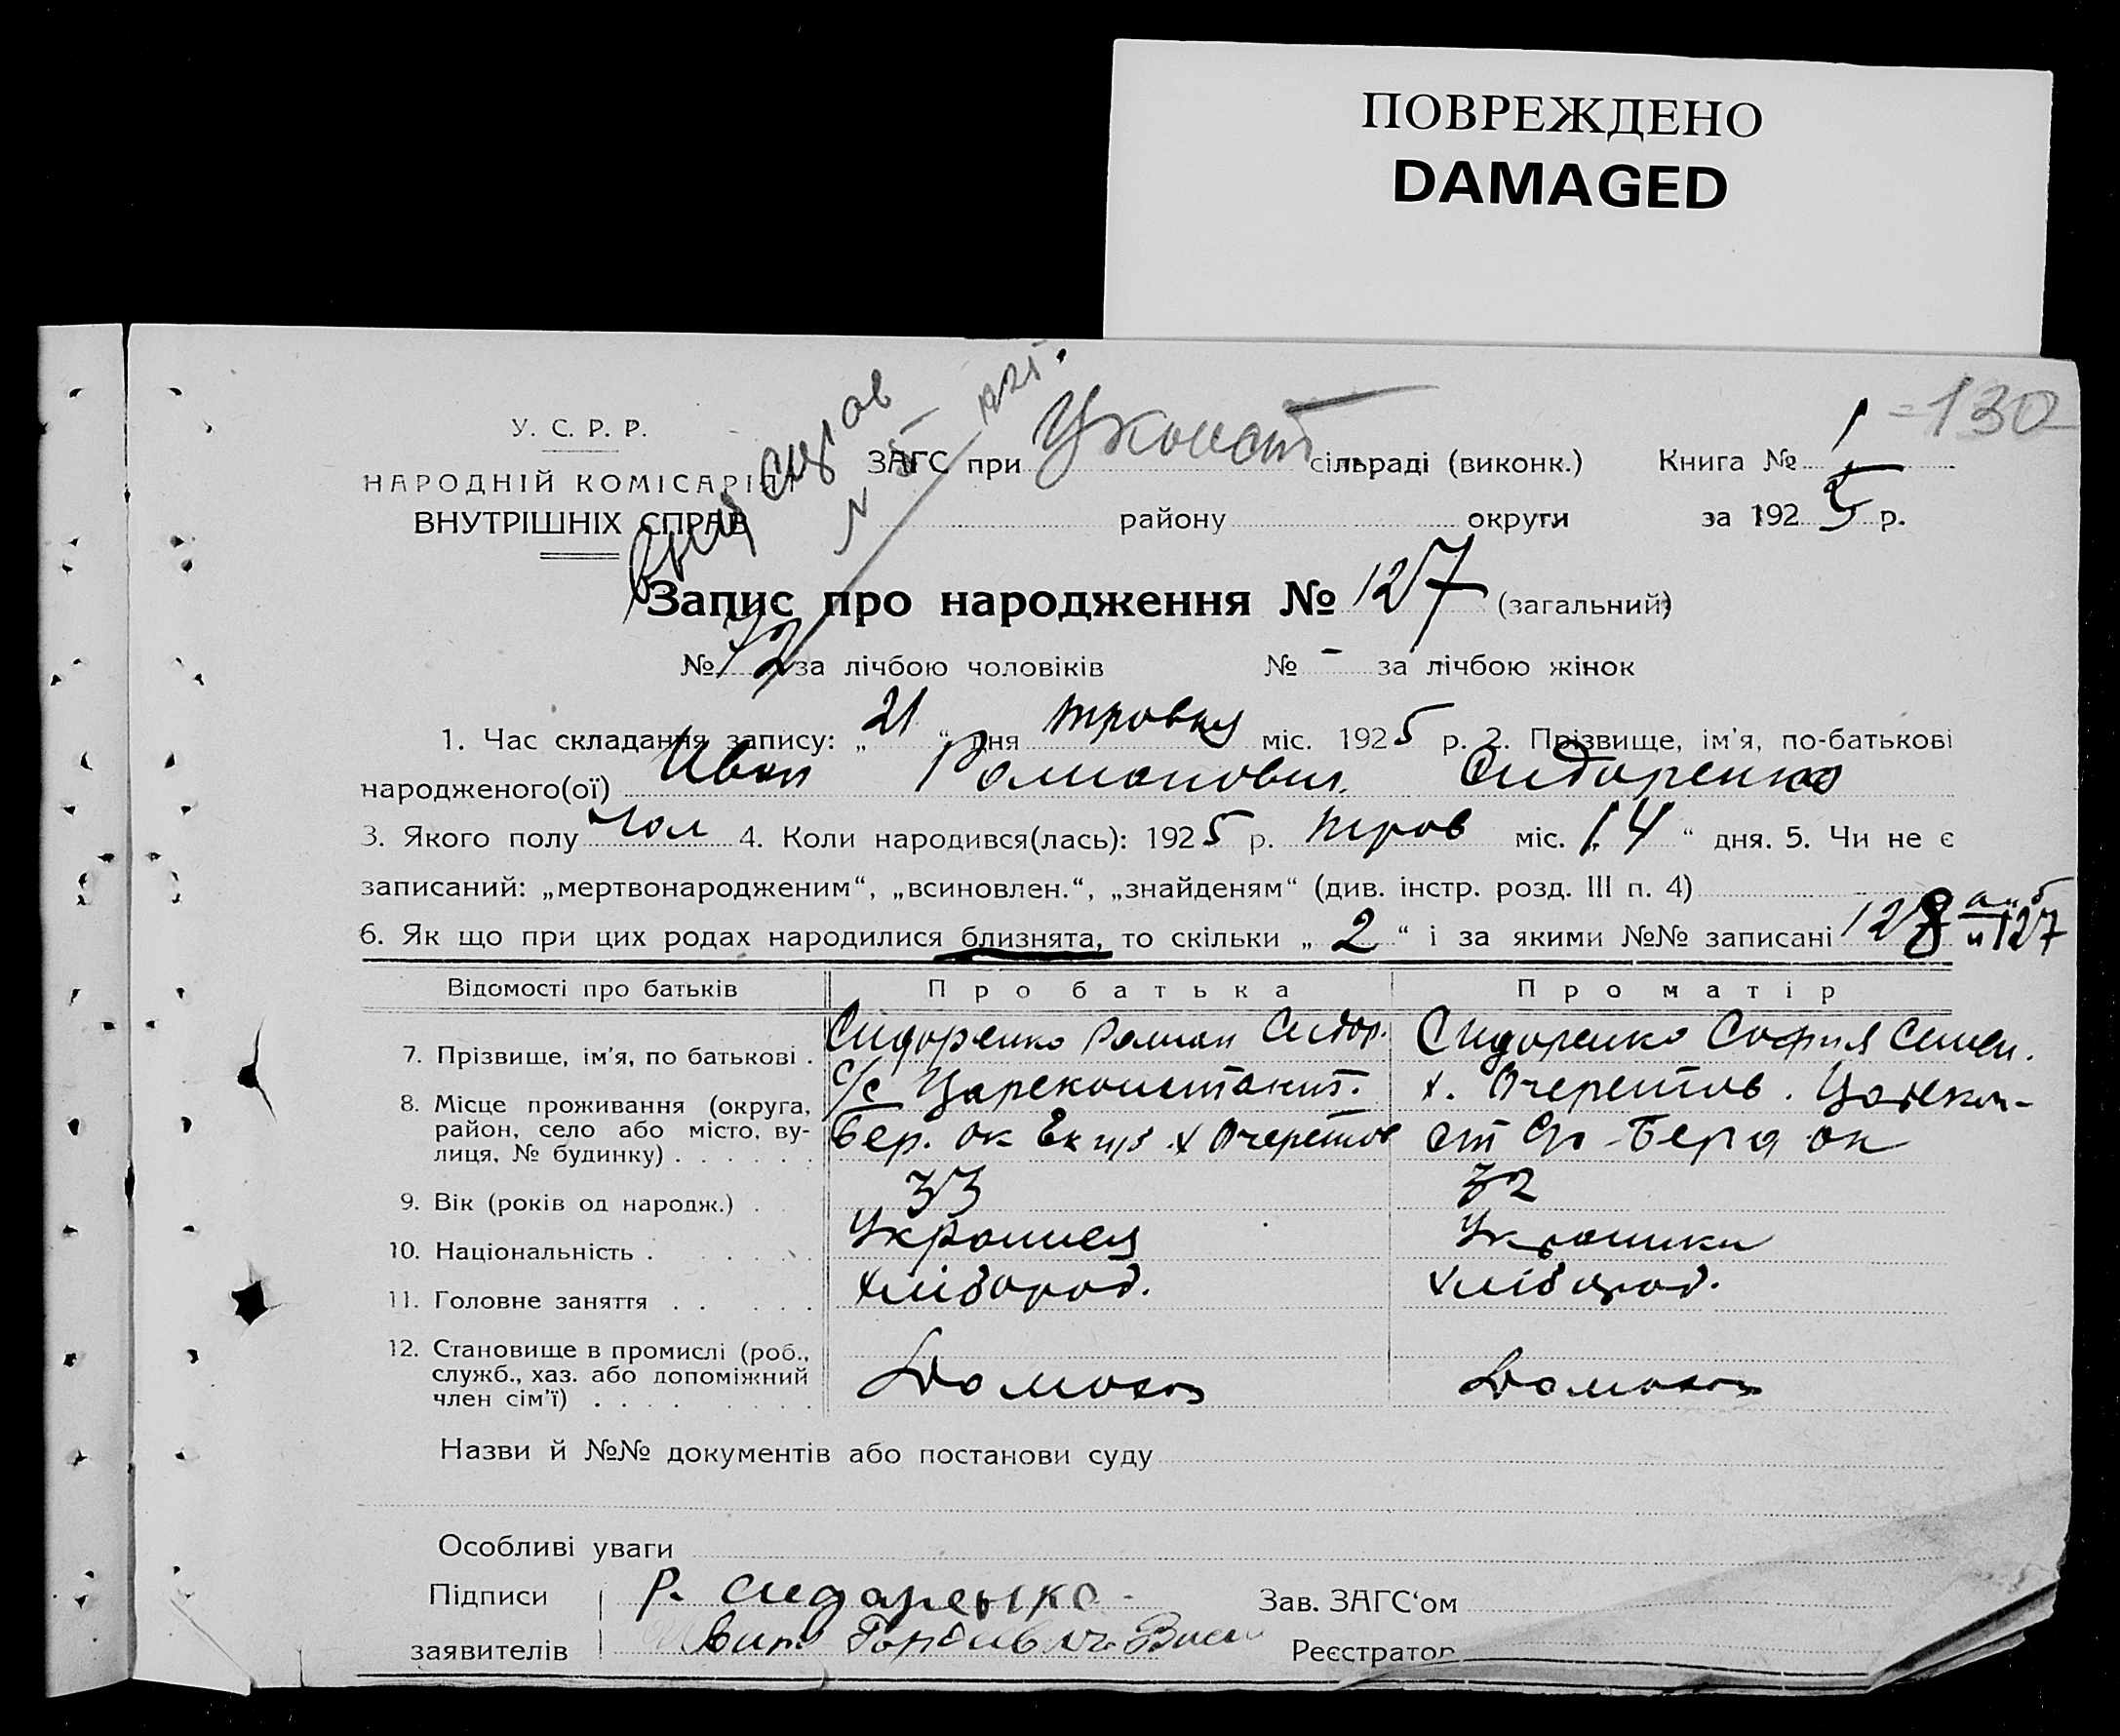 ПОВРЕЖДЕНО
DAMAGED
-130
У. С. Р. Р.
НАРОДНІЙ КОМІСАРІЯТ
ВНУТРІШНІХ СПРАВ
1925
ЗАГС при сільраді (виконк.) Книга № 1
району округи за 1925 р.
Запис про народження № 127 (загальний)
№ 72 за лічбою чоловіків № - за лічбою жінок
1. Час складання запису: „21“ дня травня міс. 1925 р. 2. Прізвище, ім'я, по-батькові
народженого(ої) Иван Романович Сидоренко
3. Якого полу чол 4. Коли народився(лась): 1925 р. трав міс. „14“ дня. 5. Чи не є
записаний: „мертвонародженим“, „всиновлен.“, „знайденям“ (див. інстр. розд. III п. 4)
6. Як що при цих родах народилися близнята, то скільки „2“ і за якими №№ записані 128 и 127
Відомості про батьків Про батька Про матір
7. Прізвище, ім'я, по батькові . Сидоренко Роман Сидор. Сидоренко София Семен.
8. Місце проживання (округа, с/с Цареконстант. х. Очеретов. Царекон-
район, село або місто, ву- Бер. ок х Очеретов ст Бердя ок
лиця, № будинку) . . . . . .
9. Вік (років од народж.) . 33 32
10. Національність . . . . . Украинец Украинка
11. Головне заняття . . . . . хлібороб. хлібороб.
12. Становище в промислі (роб.,
служб., хаз. або допоміжний Домохоз Домохоз
член сім'ї) . . . . . . . .
Назви й №№ документів або постанови суду
Особливі уваги
Підписи Р. Сидаренко Зав. ЗАГС'ом
заявителів Реєстратор